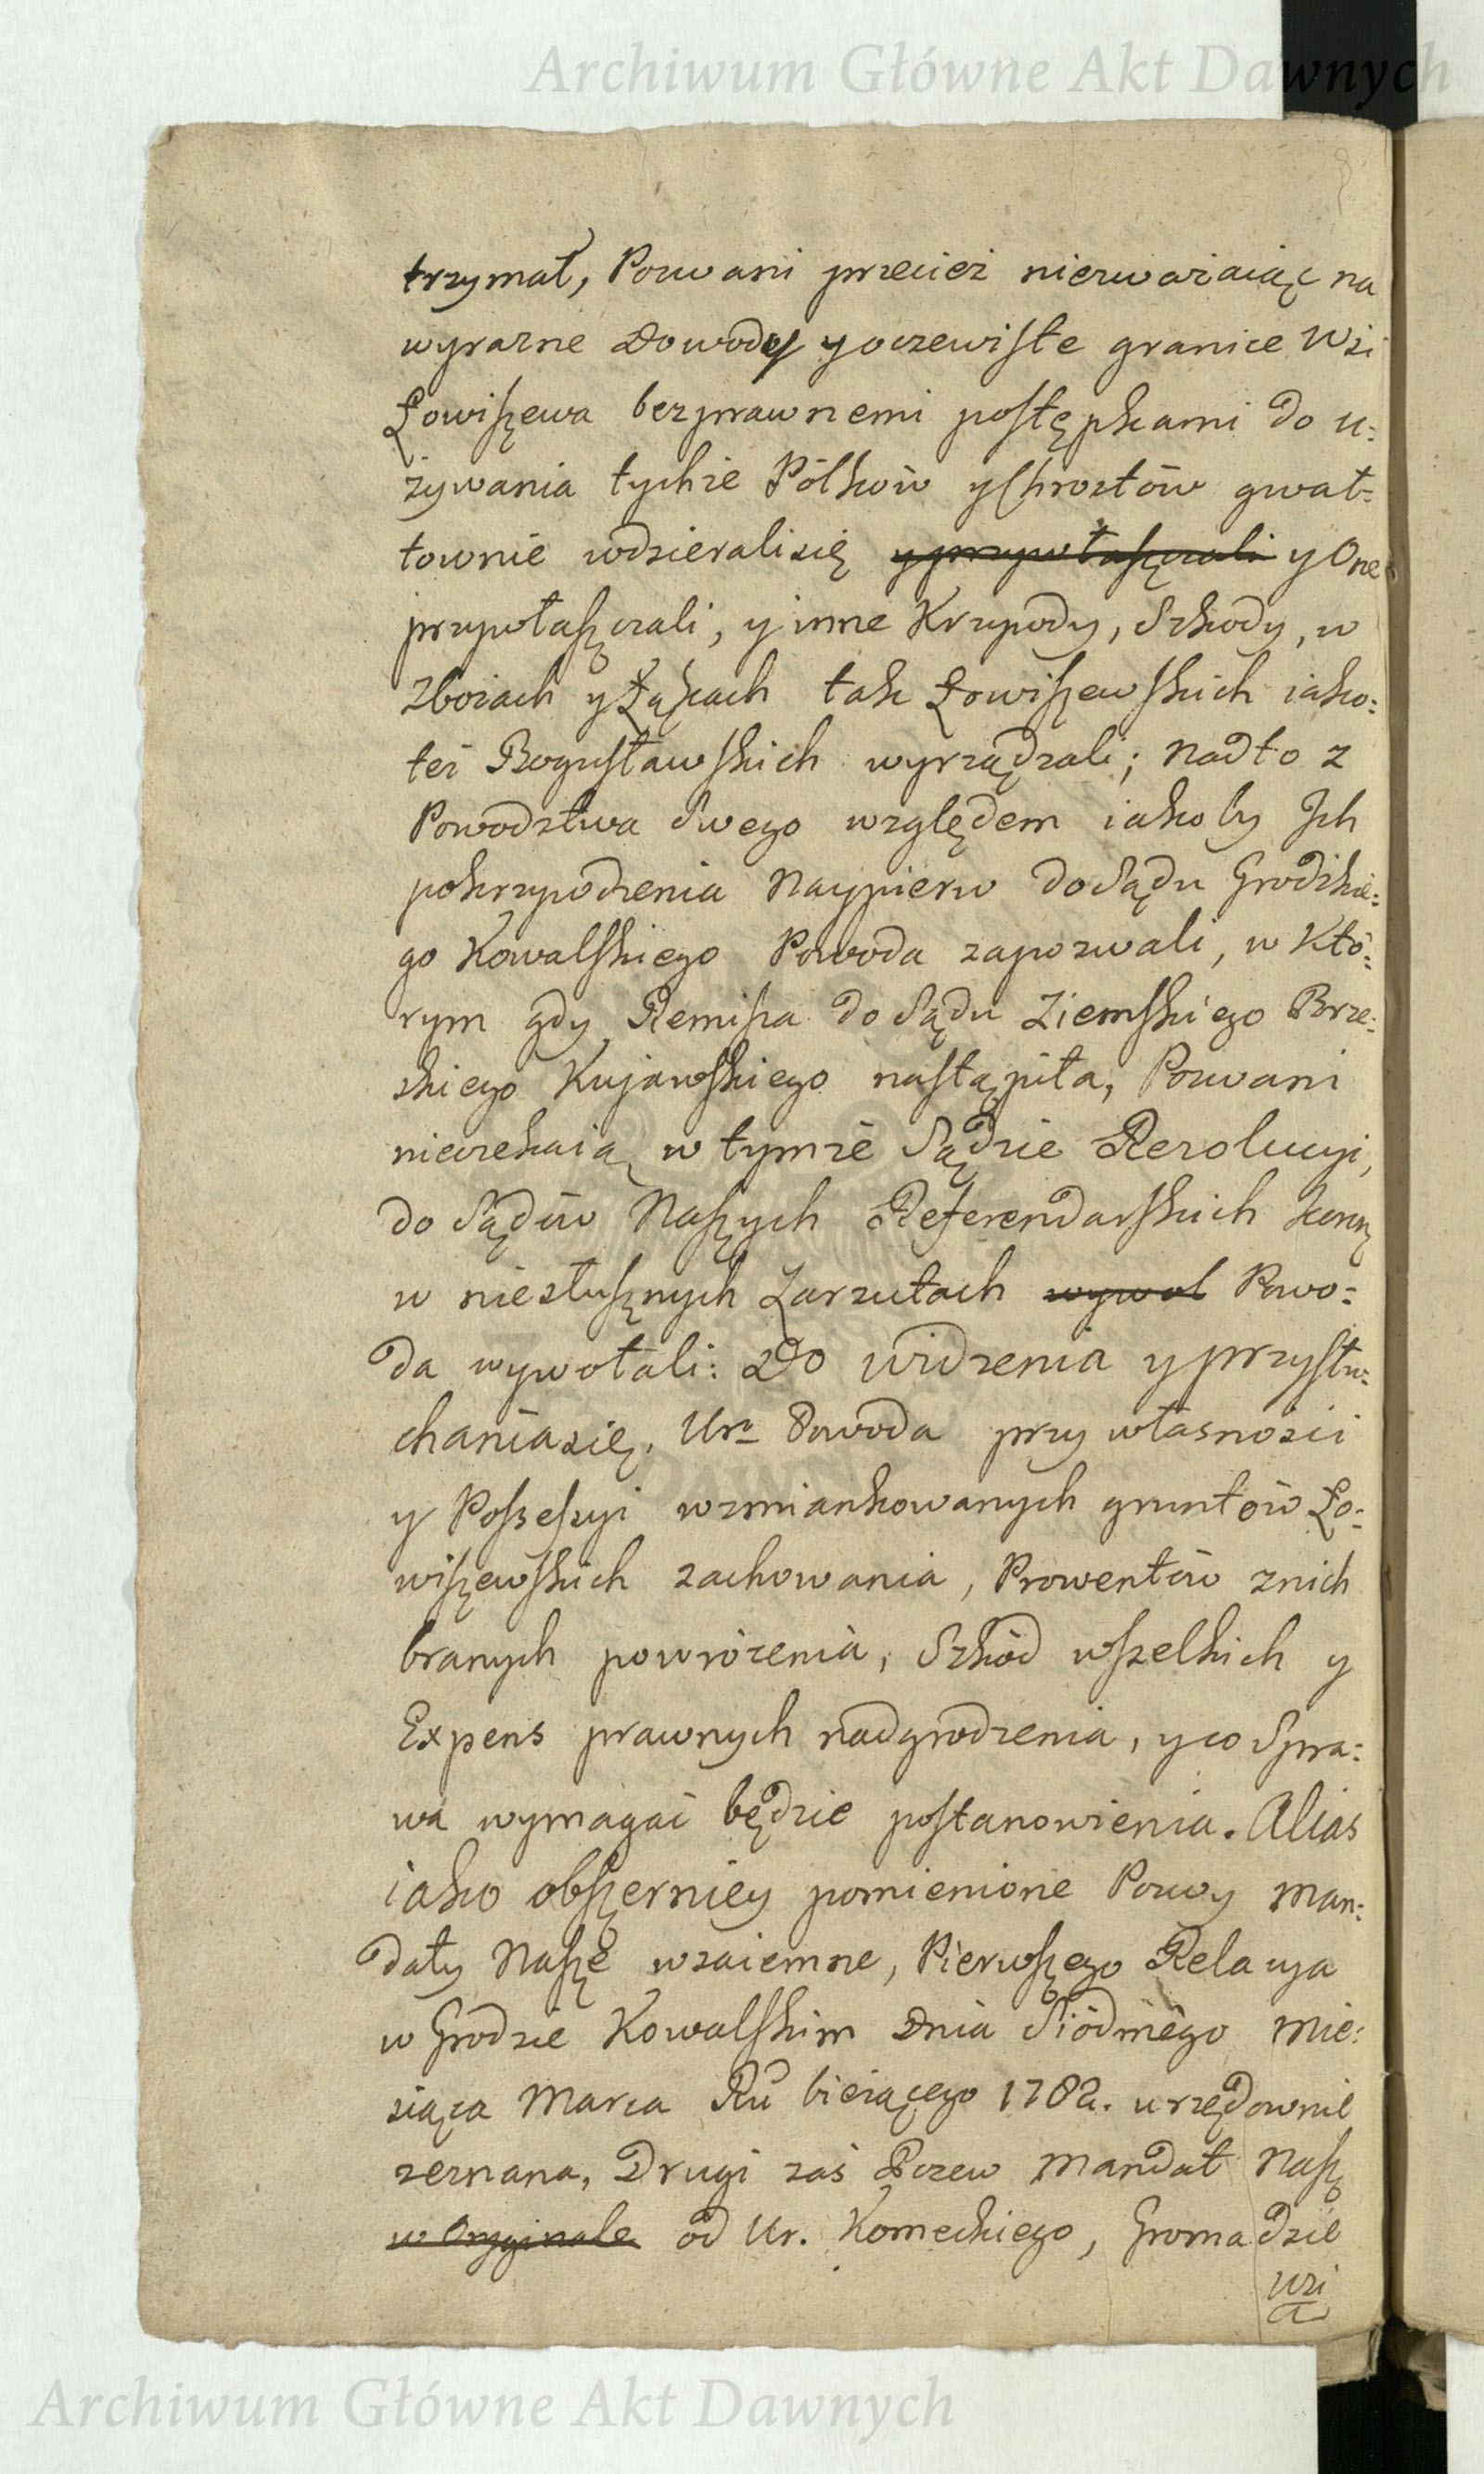 Archiwum Główne Akt Dawnych
trzymał, Pozwani przecież niezważaiąc na
wyrazne Dowody y oczewiste granice Wsi
Łowiszewa bezprawnemi postępkami do u:
żywania tychże Pólków y Chrostów gwał:
townie wdzieralisię y przywłaszczali y One
przywłaszczali, y inne Krzywdy, Szkody, w
Zboiach y Łąkach tak Łowiszewskich iako:
też Bogusławskich wyrządzali; Nadto z
Powodztwa Swego względem iakoby Ich
pokrzywdzenia Naypierw do Sądu Grodzkie:
go Kowalskiego Powoda zapozwali, w Któ:
rym gdy Remissa do Sądu Ziemskiego Brze:
skiego Kujawskiego nastąpiła, Pozwani
nieczekaią w tymże Sądzie Rezolucyi,
do Sądów Naszych Referendarskich
w niesłusznych Zarzutach wywoł Powo:
da wywołali: Do widzenia y przysłu:
chaniasię. Ur. Powoda przy własności
y Possessyi wzmiankowanych gruntów Ło:
wiszewskich zachowania, Prowentów znich
branych powrócenia, Szkód wszelkich y
Expens prawnych nadgrodzenia, y co Spra:
wa wymagać będzie postanowienia. Alias
iako obszerniey pomienione Pozwy Man:
daty Nasze wzaiemne, Pierwszego Relacya
w Grodzie Kowalskim Dnia Siódmego Mie:
siąca Marca Ru bieżącego 1782. urzędownie
zeznana, Drugi zaś Pozew Mandat Nasz
w Oryginale od Ur. Komeckiego, Gromadzie
wsi
Archiwum Główne Akt Dawnych